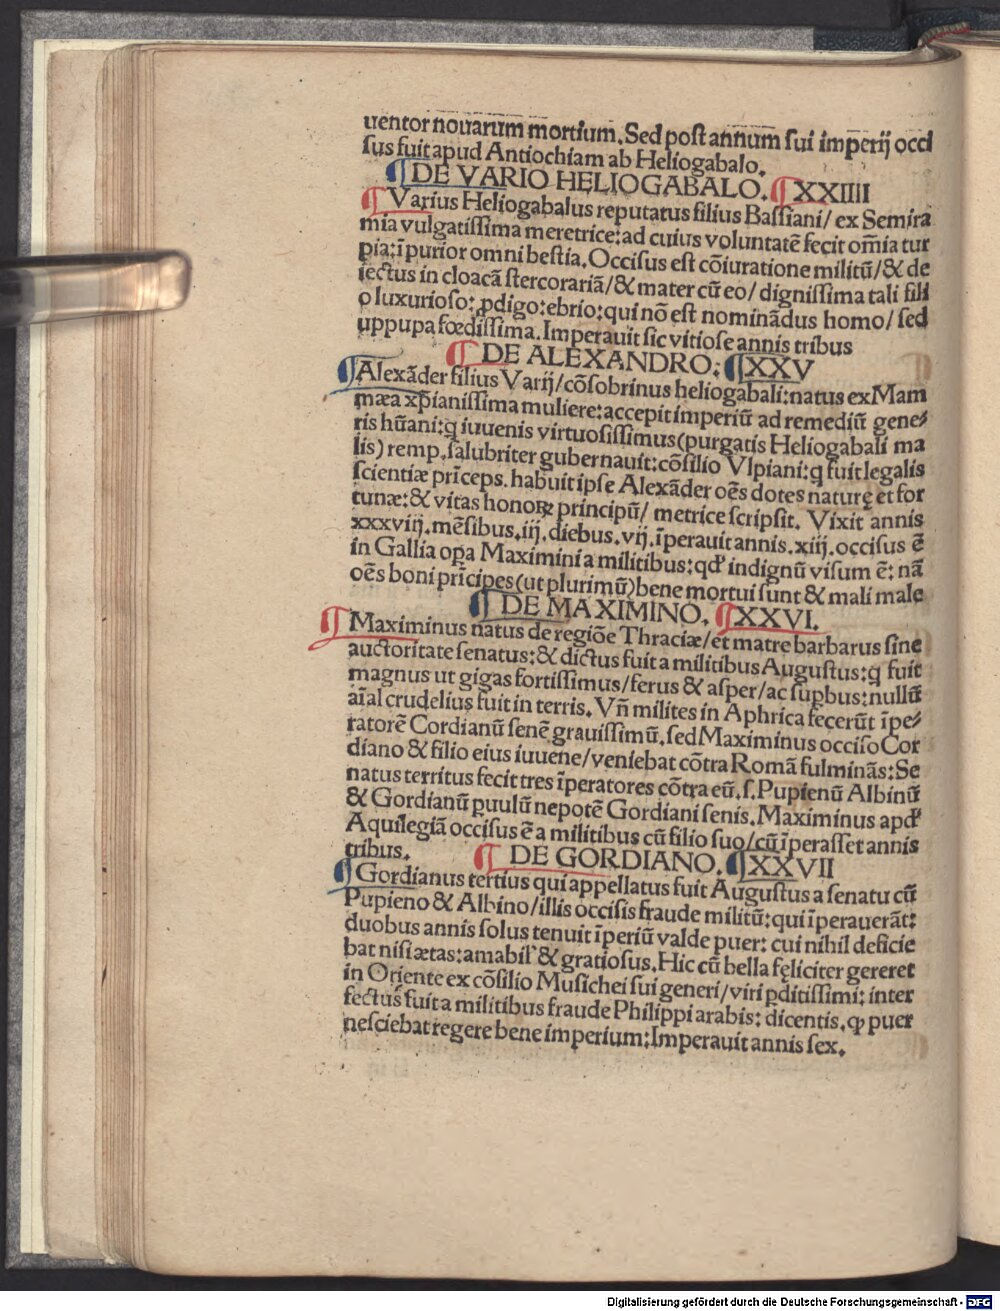 uentor nouarum mortium. Sed post annum sui imperij occi
sus fuit apud Antiochiam ab Heliogabalo.
¶ DE VARIO HELIOGABALO. ¶ XXIIII
¶ Varius Heliogabalus reputatus filius Bassiani/ ex Semira
mia vulgatissima meretrice: ad cuius voluntatē fecit om̄ia tur
pia: ī purior omni bestia. Occisus est cōiuratione militū/ & de
iectus in cloacā stercorariā/ & mater cū eo/ dignissima tali fili
o luxurioso: ꝓdigo: ebrio: qui nō est nominādus homo/ sed
uppupa fœdissima. Imperauit sic vitiose annis tribus
¶ DE ALEXANDRO: ¶ XXV
¶ Alexāder filius Varij/ cōsobrinus heliogabali: natus ex Mam
mæa xp̄ianissima muliere: accepit imperiū ad remediū gene⸗
ris hūani: q iuuenis virtuosissimus (purgatis Heliogabali ma
lis) remp. salubriter gubernauit: cōsilio Vlpiani: q fuit legalis
scientiæ prīceps. habuit ipse Alexāder oēs dotes naturę et for
tunæ: & vitas honoꝝ principū/ metrice scripsit. Vixit annis
xxxviij. mēsibus. iij. diebus. vij. īperauit annis. xiij. occisus ē
in Gallia opa Maximini a militibus: qđ indignū visum ē: nā
oēs boni prīcipes (ut plurimū) bene mortui sunt & mali male
¶ DE MAXIMINO. ¶ XXVI.
¶ Maximinus natus de regiōe Thraciæ/ et matre barbarus sine
auctoritate senatus: & dictus fuit a militibus Augustus: q fuit
magnus ut gigas fortissimus/ ferus & asper/ ac supbus: nullū
aīal crudelius fuit in terris. Vñ milites in Aphrica fecerūt īpe⸗
ratorē Cordianū senē grauissimū. sed Maximinus occiso Cor
diano & filio eius iuuene/ veniebat cōtra Romā fulminās: Se
natus territus fecit tres īperatores cōtra eū. s. Pupienū Albinū
& Gordianū puulū nepotē Gordiani senis. Maximinus apđ
Aquilegiā occisus ē a militibus cū filio suo/ cū īperasset annis
tribus. ¶ DE GORDIANO. ¶ XXVII
¶ Gordianus tertius qui appellatus fuit Augustus a senatu cū
Pupieno & Albino/ illis occisis fraude militū: qui īperauerāt:
duobus annis solus tenuit īperiū valde puer: cui nihil deficie
bat nisi ætas: amabil' & gratiosus. Hic cū bella fęliciter gereret
in Oriente ex cōsilio Musichei sui generi/ viri ꝑditissimi: inter
fectus fuit a militibus fraude Philippi arabis: dicentis. ꝙ puer
nesciebat regere bene imperium: Imperauit annis sex.
Digitalisierung gefördert durch die Deutsche Forschungsgemeinschaft - DFG